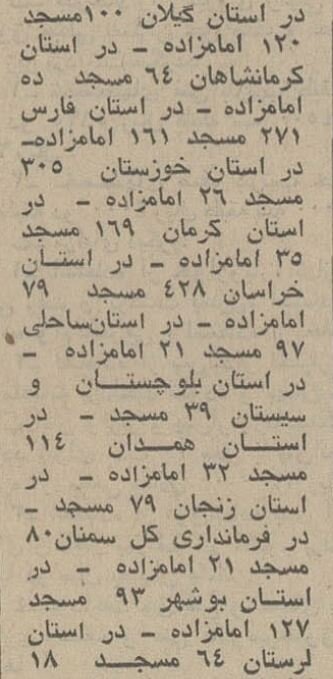 در استان گیلان ۱۰۰ مسجد
۱۲۰ امامزاده ــ در استان
کرمانشاهان ٦٤ مسجد ده
امامزاده ــ در استان فارس
۲۷۱ مسجد ۱٦۱ امامزاده ــ
در استان خوزستان ۳۰۵
مسجد ۲٦ امامزاده ــ در
استان کرمان ۱٦۹ مسجد
۳۵ امامزاده ــ در استان
خراسان ٤۲۸ مسجد ۷۹
امامزاده ــ در استان ساحلی
۹۷ مسجد ۲۱ امامزاده ــ
در استان بلوچستان و
سیستان ۳۹ مسجد ــ در
استان همدان ۱۱٤
مسجد ۳۲ امامزاده ــ در
استان زنجان ۷۹ مسجد ــ
در فرمانداری کل سمنان ۸۰
مسجد ۲۱ امامزاده ــ در
استان بوشهر ۹۳ مسجد
۱۲۷ امامزاده ــ در استان
لرستان ٦٤ مسجد ۱۸